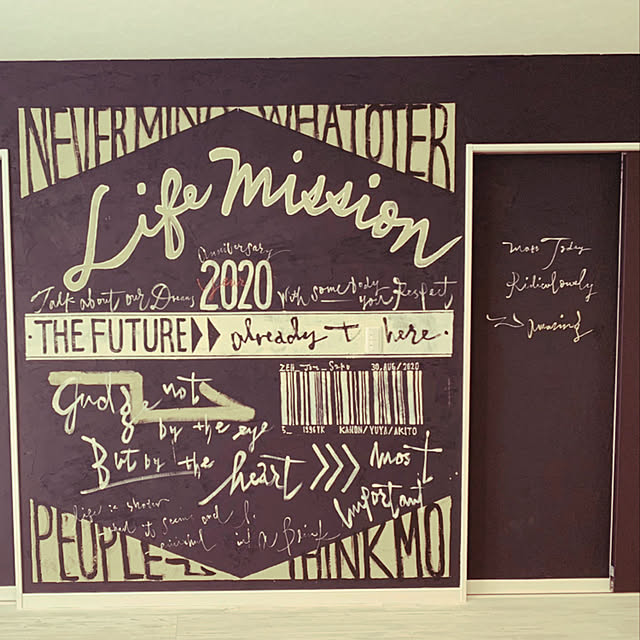 NEVERMIND WHATOTER
Life Mission
Anniversary
2020
Talk about our Dreams
with somebody
you Respect
·THE FUTURE already + here·
Gudge not
by the eye
But by the heart
most
important
ZEN 30.AUG/2020
1996YK KANON/YUYA/AKITO
Life is
it seems and
PEOPLE THINK MO
Make Today
Ridiculously
amazing